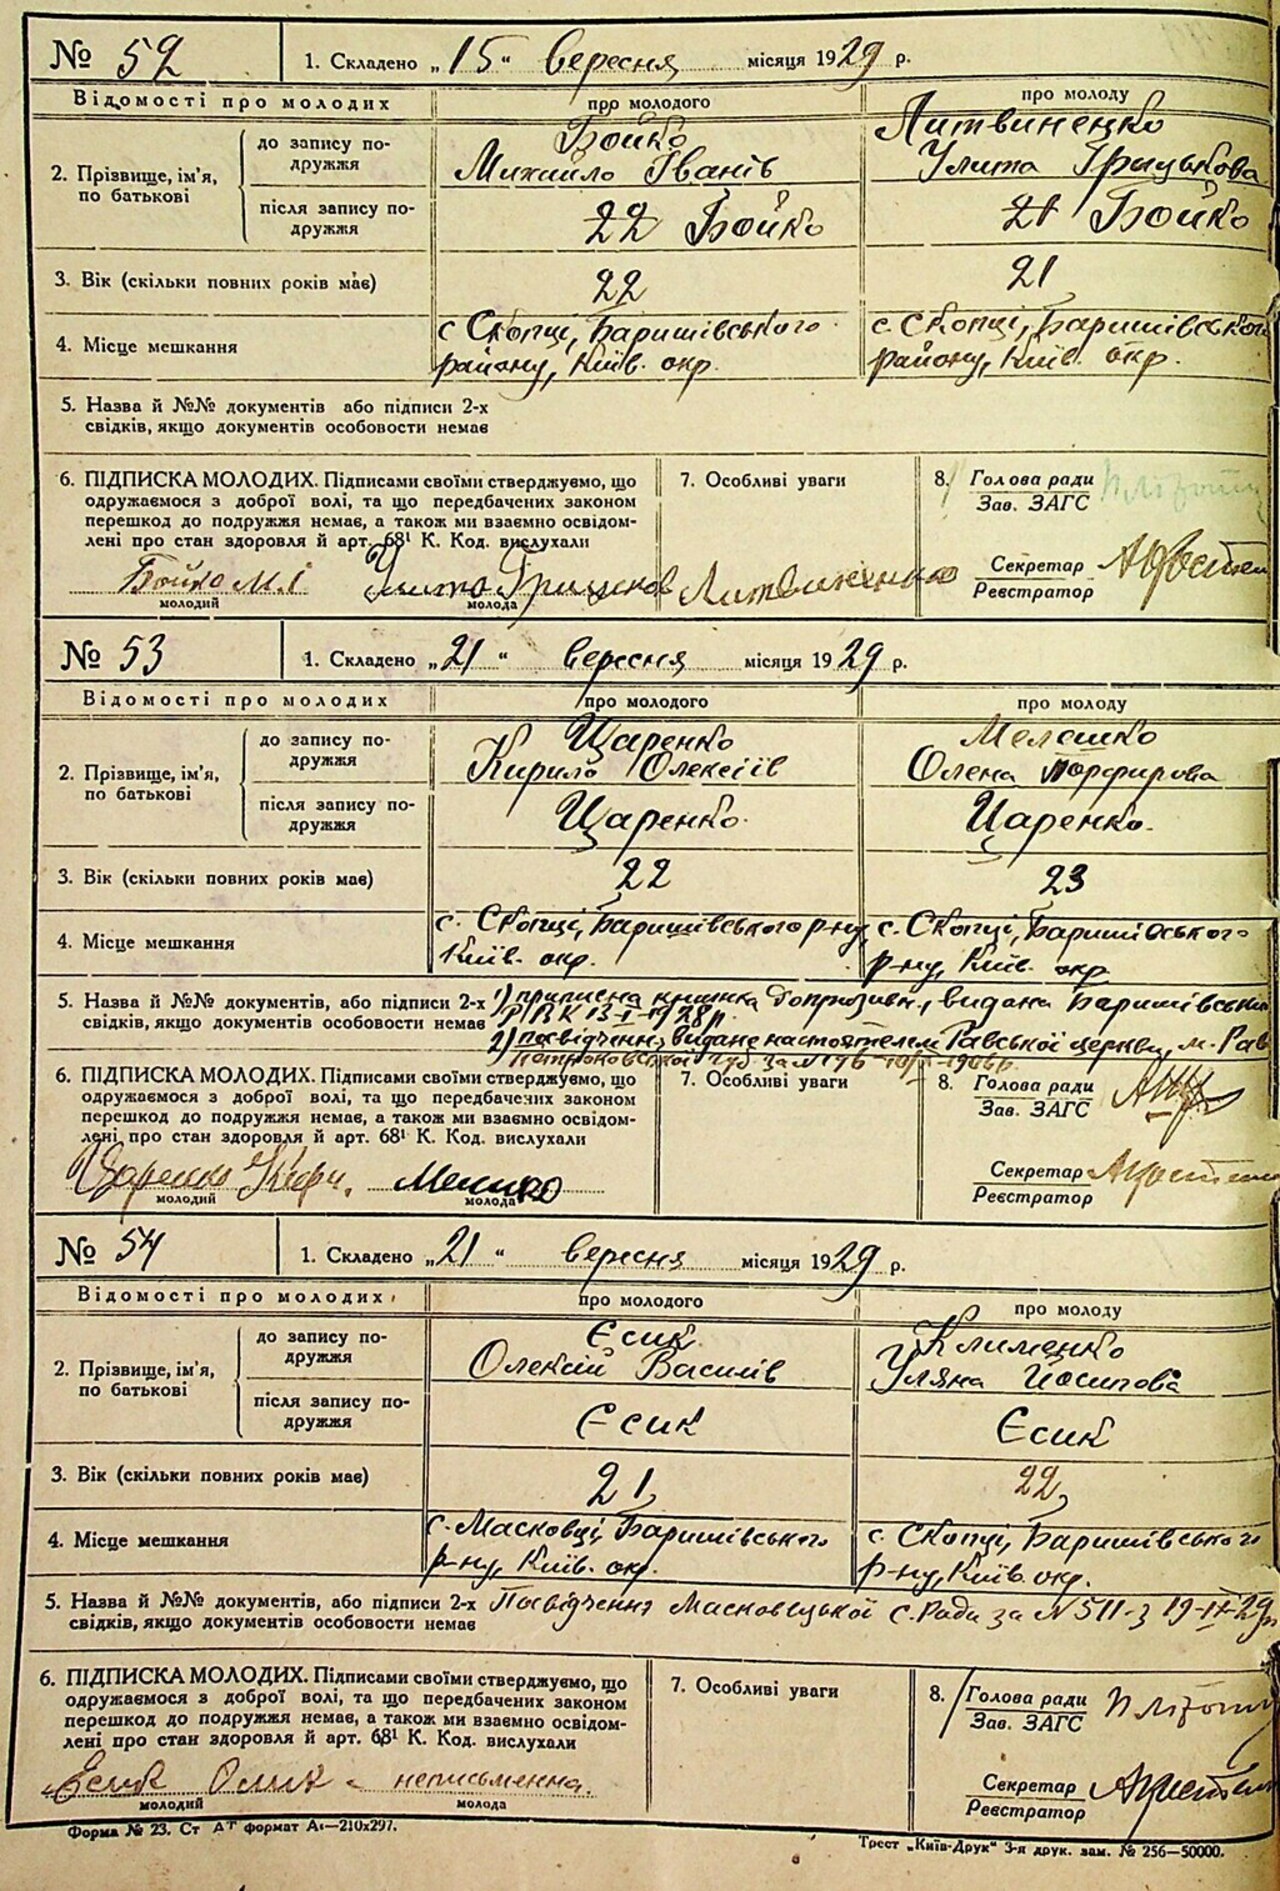 № 52 1. Складено „15“ вересня місяця 1929 р.
Відомості про молодих про молодого про молоду
2. Прізвище, ім'я, по батькові
до запису подружжя
Бойко
Михайло Іванів
Литвиненко
Улита Грицькова
після запису подружжя
22 Бойко 21 Бойко
3. Вік (скільки повних років має) 22 21
4. Місце мешкання
с Скопці, Баришівського
району, Київ. окр.
с. Скопці, Баришівського
району, Київ. окр.
5. Назва й №№ документів або підписи 2-х
свідків, якщо документів особовости немає
6. ПІДПИСКА МОЛОДИХ. Підписами своїми стверджуємо, що
одружаємося з доброї волі, та що передбачених законом
перешкод до подружжя немає, а також ми взаємно освідом-
лені про стан здоровля й арт. 68¹ К. Код. вислухали
7. Особливі уваги
8. Голова ради
Зав. ЗАГС
Секретар
Реєстратор
Бойко М. І Улита Литвиненко
молодий молода
№ 53 1. Складено „21“ вересня місяця 1929 р.
Відомості про молодих про молодого про молоду
2. Прізвище, ім'я, по батькові
до запису подружжя
Царенко
Кирило Олексіїв
Мелешко
Олена Порфирова
після запису подружжя
Царенко. Царенко.
3. Вік (скільки повних років має) 22 23
4. Місце мешкання
с. Скопці, Баришівського р-ну,
Київ. окр.
с. Скопці, Баришівського
р-ну, Київ. окр
5. Назва й №№ документів, або підписи 2-х
свідків, якщо документів особовости немає
1) приписна книжка допризивн., видана Баришівськ
РВК 13-I-1928р.
2) посвідчення видане настоятелем Равської церкви, м. Рав
6. ПІДПИСКА МОЛОДИХ. Підписами своїми стверджуємо, що
одружаємося з доброї волі, та що передбачених законом
перешкод до подружжя немає, а також ми взаємно освідом-
лені про стан здоровля й арт. 68¹ К. Код. вислухали
7. Особливі уваги
8. Голова ради
Зав. ЗАГС
Секретар
Реєстратор
Царенко Кири.
молодий молода
№ 54 1. Складено „21“ вересня місяця 1929 р.
Відомості про молодих про молодого про молоду
2. Прізвище, ім'я, по батькові
до запису подружжя
Єсик
Олексій Василів
Клименко
Уляна Йосипова
після запису подружжя
Єсик Єсик
3. Вік (скільки повних років має) 21 22
4. Місце мешкання
с. Масковці, Баришівського
р-ну, Київ. окр.
с. Скопці, Баришівського
р-ну, Київ. окр.
5. Назва й №№ документів, або підписи 2-х
свідків, якщо документів особовости немає
Посвідчення Масковецької С. Ради за N 511-з 19-IX-29р
6. ПІДПИСКА МОЛОДИХ. Підписами своїми стверджуємо, що
одружаємося з доброї волі, та що передбачених законом
перешкод до подружжя немає, а також ми взаємно освідом-
лені про стан здоровля й арт. 68¹ К. Код. вислухали
7. Особливі уваги
8. Голова ради
Зав. ЗАГС
Секретар
Реєстратор
Єсик неписьменна.
молодий молода
Форма № 23. Ст формат А₄—210х297.
Трест „Київ-Друк“ 3-я друк. зам. № 256—50000.